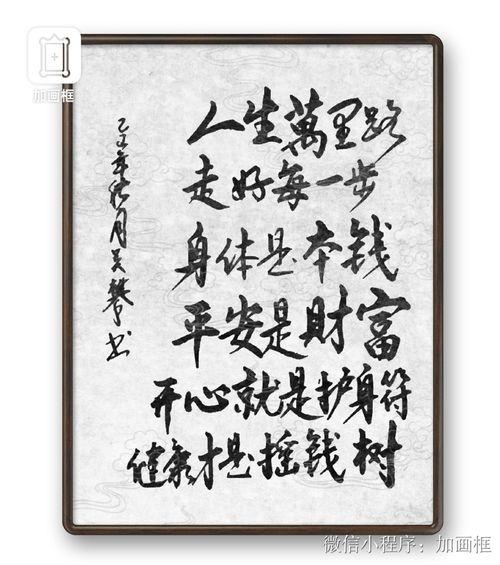 加画框
人生萬里路
走好每一步
身体是本钱
平安是財富
开心就是护身符
健康才是摇钱树
年秋月吴书
微信小程序：加画框